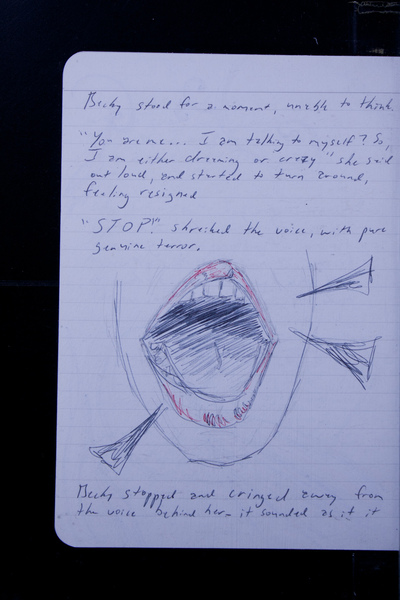 Becky stood for a moment, unable to think.
"You are me... I am talking to myself? So,
I am either dreaming or crazy" she said
out loud, and started to turn around,
feeling resigned
"STOP!" shreiked the voice, with pure
genuine terror.
Becky stopped and cringed away from
the voice behind her - it sounded as if it